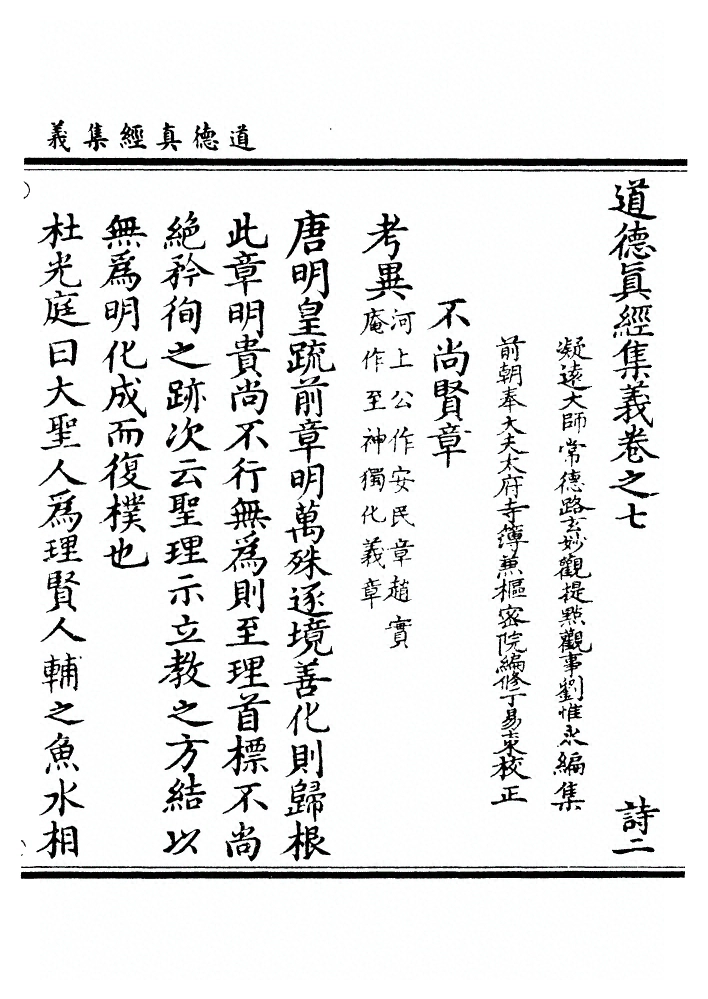 道德真經集義
道德眞經集義卷之七 詩二
凝遠大師常德路玄妙觀提點觀事劉惟永編集
前朝奉大夫太府寺簿兼樞密院編修丁易東校正
不尚賢章
考異河上公作安民章趙實
庵作至神獨化義章
唐明皇疏前章明萬殊逐境善化則歸根
此章明貴尚不行無爲則至理首標不尚
絕矜徇之跡次云聖理示立教之方結以
無爲明化成而復樸也
杜光庭曰大聖人爲理賢人輔之魚水相